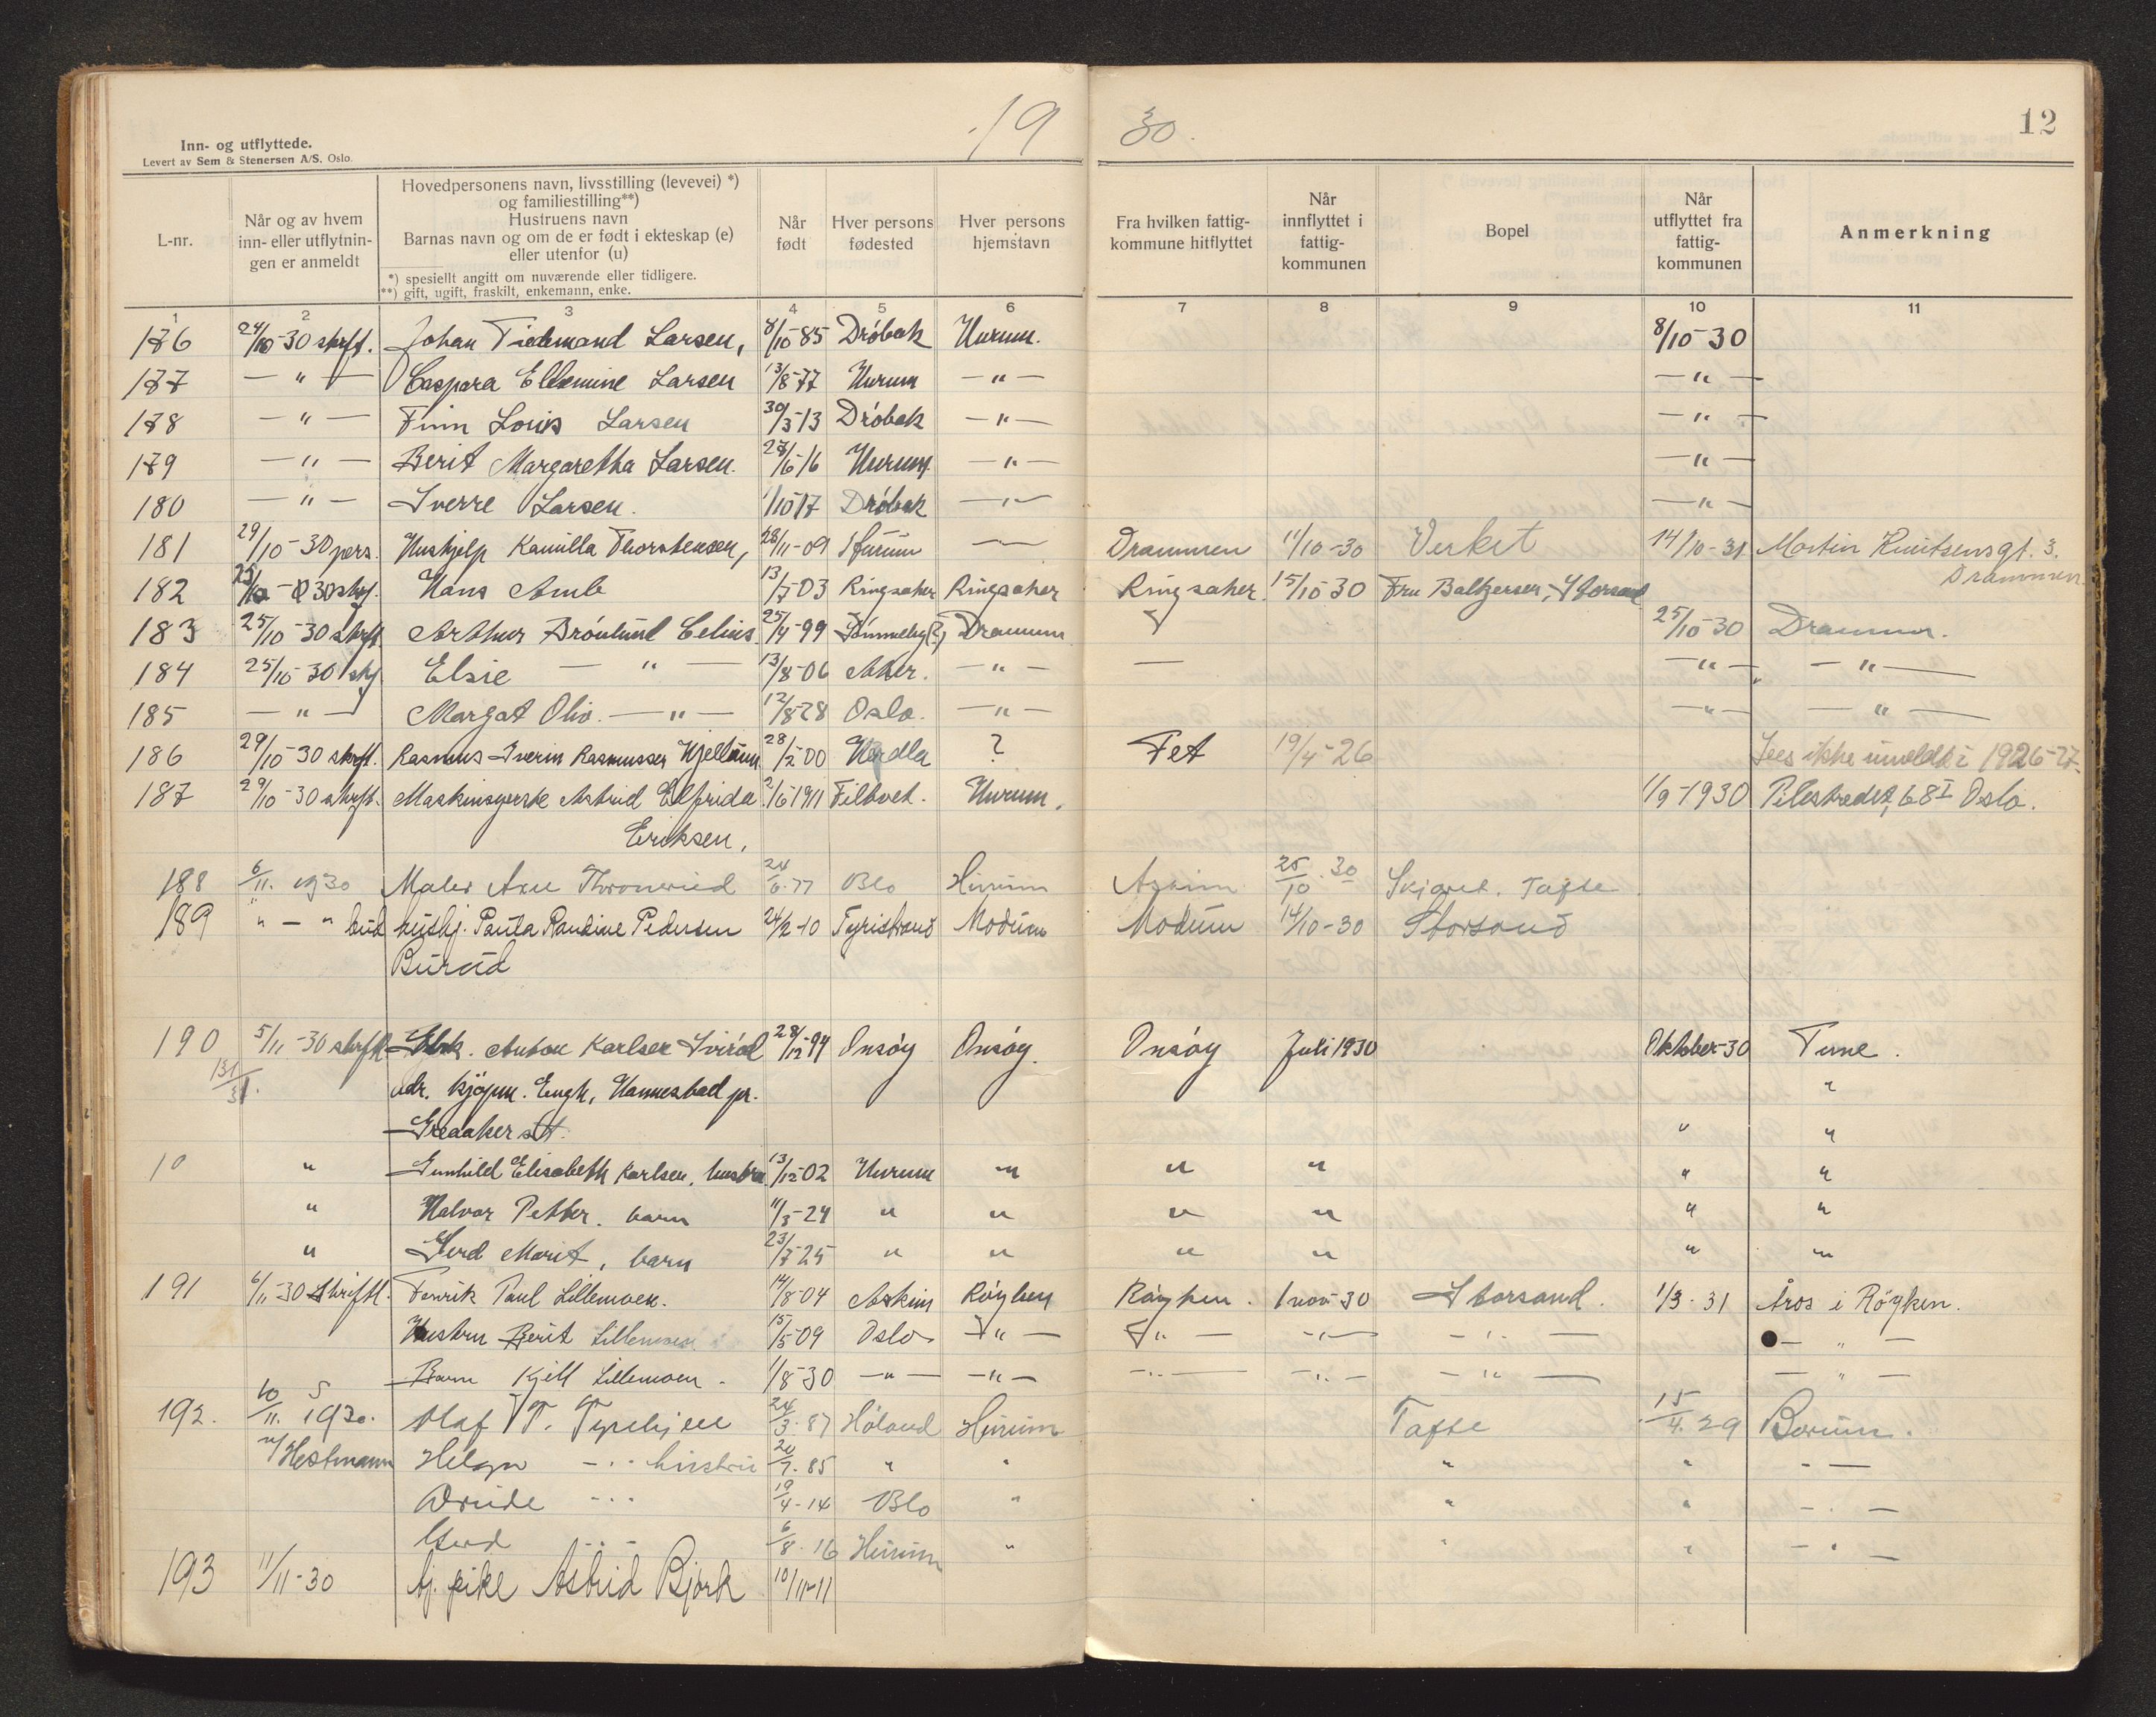 19 30.
12
Inn- og utflyttede.
Levert av Sem & Stenersen A/S. Oslo.
L-nr.
Når og av hvem inn- eller utflytningen er anmeldt
Hovedpersonens navn, livsstilling (levevei) *) og familiestilling**)
Hustruens navn
Barnas navn og om de er født i ekteskap (e) eller utenfor (u)
*) spesiellt angitt om nuværende eller tidligere.
**) gift, ugift, fraskilt, enkemann, enke.
Når født
Hver persons fødested
Hver persons hjemstavn
Fra hvilken fattigkommune hitflyttet
Når innflyttet i fattigkommunen
Bopel
Når utflyttet fra fattigkommunen
Anmerkning
1 2 3 4 5 6 7 8 9 10 11
176 24/10-30 skrftl. Johan Tidemand Larsen, 8/10-85 Drøbak Hurum. 8/10-30
177 — " — Caspara Ellemine Larsen 13/8-77 Hurum — " — — " —
178 — " — Finn Louis Larsen 30/3-13 Drøbak — " — — " —
179 — " — Berit Margaretha Larsen. 27/6-16 Hurum. — " — — " —
180 — " — Sverre Larsen. 1/10-17 Drøbak — " — — " —
181 29/10-30 pers. Hushjelp Kamilla Thorstensen, 28/11-09 Hurum — Drammen 11/10-30 Verket 14/10-31 Martin Knutsensgt. 3.
Drammen
182 25/10-30 skrf. Hans Amb 13/7-03 Ringsaker Ringsaker Ringsaker 15/10-30 Fru Baltzersen, Storsand
183 25/10-30 skrft. Arthur Brønlund Celius 25/4-99 Drammen 25/10-30 Drammen.
184 25/10-30 skrf Elsie — " — 13/8-06 Aker. — " — — — " — — " —
185 — " — Margat Oliv. — " — 12/8-28 Oslo. — " — — " — — " —
186 29/10-30 skrftl. Rasmus Sverin Rasmussen 28/2-00 Herdla ? Fet 19/4-26 Sees ikke innmeldt i 1926-27.
187 29/10-30 skrftl. Maskinsyerske Astrid Elfrida 2/6-1911 Filtvet. Hurum. 1/9-1930 Pilestredet, 68 I Oslo.
Eriksen,
188 6/11. 1930 Maler Throneried 24/6-77 Oslo Hurum Askim 25/10.30 Tofte
189 " — " bud hushj. Paula Randine Pedersen 24/2-10 Tyristrand Modum Modum 14/10-30 Storsand
Burud
190 5/11-30 skrftl Anton Karlsen 28/12-94 Onsøy Onsøy. Onsøy Juli 1930 Oktober-30 Tune.
131/31. adr. kjøpm. Engh, Hannestad pr. "
Greaaker st. " "
10 " Gunhild Elisabeth Karlsen, hustru 13/12-02 Hurum " " " " "
" Halvor Petter. barn 11/3-24 " " " " " "
" Gerd Marit, barn 23/7-25 " " " " " "
191 6/11-30 skriftl. Fenrik Paul Lillemoen. 14/8-04 Askim Røyken Røyken. 1 nov-30 Storsand. 1/3-31 Åros i Røyken.
Hustru Berit Lillemoen 15/5-09 Oslo — " — — " — — " — — " — — " —
Barn Kjell Lillemoen. 1/8-30 — " — — " — — " — — " — — " — — " —
192. 10/11. 1930. Olaf T. 24/3.87 Høland Hurum Tofte 15/4.29 Bærum.
v/Hestmann Helga — " hustru 20/7.85 " " " " — " —
Drude — " 19/4-14 Oslo " " " — " —
Gerd — " — 6/8.16 Hurum " " " — " —
193 11/11-30 Astrid Bjørk 10/11-11